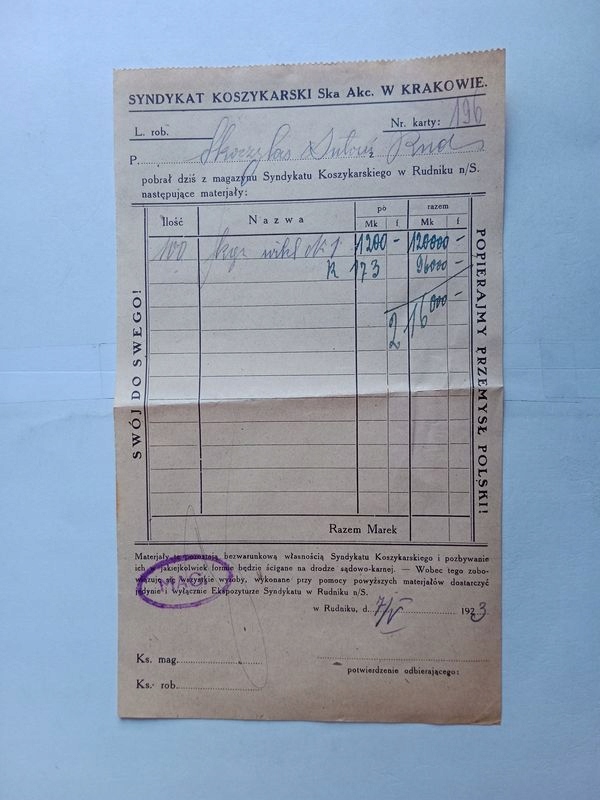 SYNDYKAT KOSZYKARSKI Ska Akc. W KRAKOWIE.
L. rob.
Nr. karty: 196
P. Skoczylas Rud
pobrał dziś z magazynu Syndykatu Koszykarskiego w Rudniku n/S.
następujące materjały:
SWÓJ DO SWEGO!
Ilość Nazwa po razem
Mk f Mk f
100 kgr wikl ok 1 1200 - 120000 -
R 173 96000 -
216000 -
Razem Marek
POPIERAJMY PRZEMYSŁ POLSKI!
Materjały te pozostają bezwarunkową własnością Syndykatu Koszykarskiego i pozbywanie
ich w jakiejkolwiek formie będzie ścigane na drodze sądowo-karnej. — Wobec tego zobo-
wiązuję się wszystkie wyroby, wykonane przy pomocy powyższych materjałów dostarczyć
jedynie i wyłącznie Ekspozyturze Syndykatu w Rudniku n/S.
w Rudniku, d. 7/V 1923
Ks. mag.
potwierdzenie odbierającego:
Ks. rob.